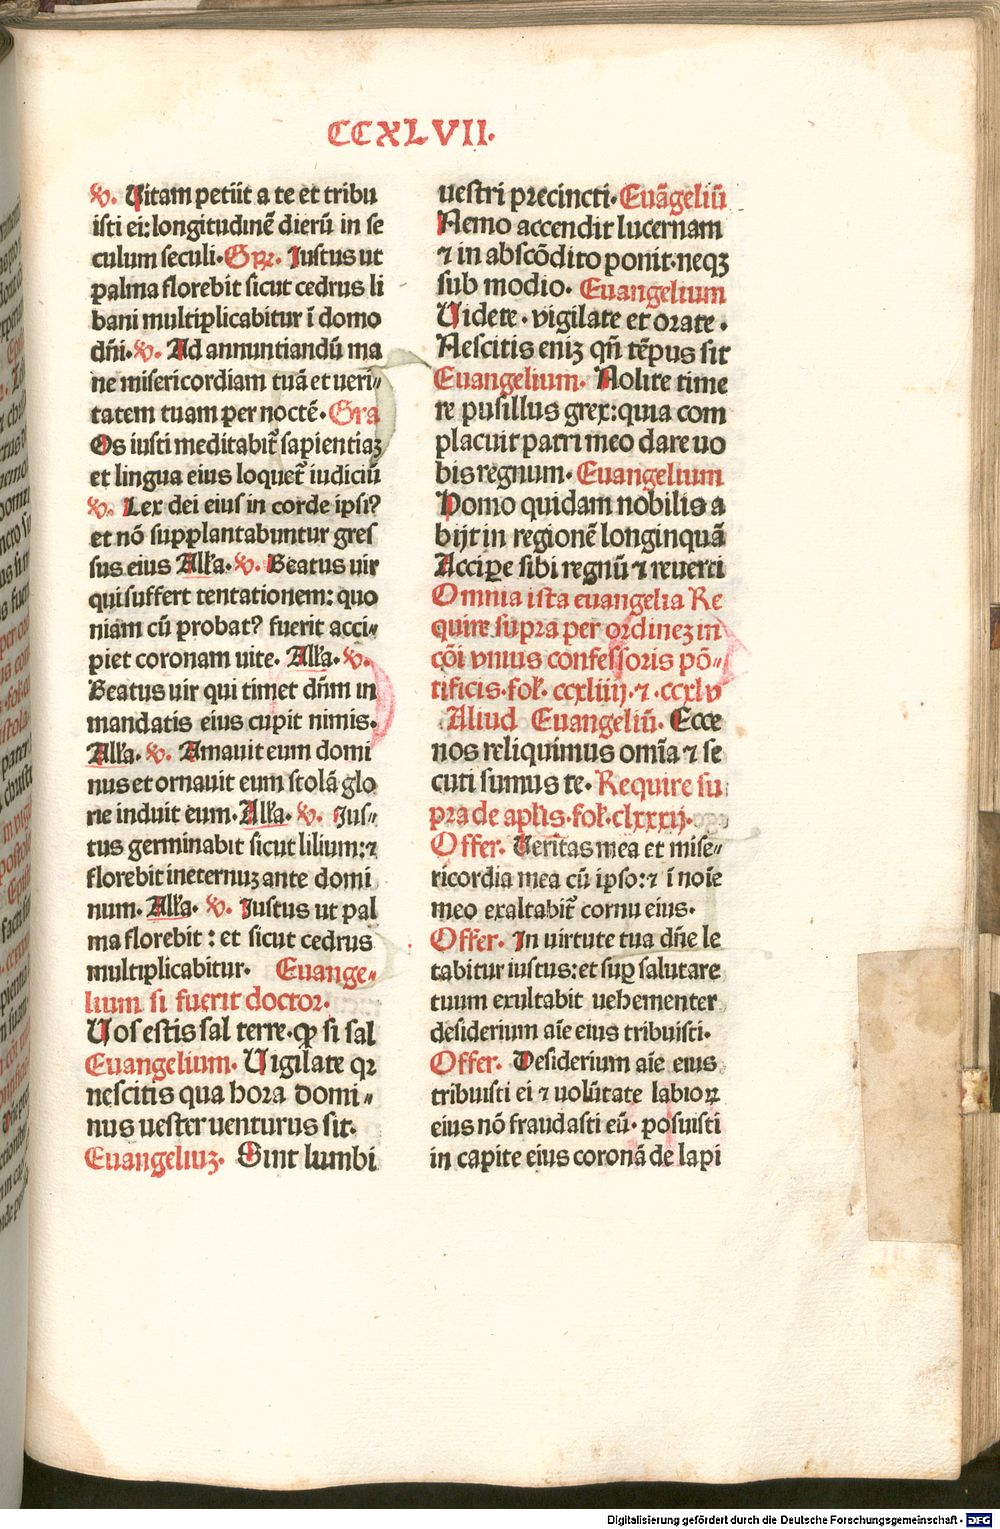 CCXLVII.
℣. Uitam petiit a te et tribu
isti ei: longitudinē dierū in se
culum seculi. Gr̄. Iustus ut
palma florebit sicut cedrus li
bani multiplicabitur ī domo
dn̄i. ℣. Ad annuntiandū ma
ne misericordiam tuā et ueri⸗
tatem tuam per noctē. Gra
Os iusti meditabit᷑ sapientiaꝫ
et lingua eius loquet᷑ iudiciū
℣. Lex dei eius in corde ipsiꝰ
et nō supplantabuntur gres
sus eius Alła. ℣. Beatus uir
qui suffert tentationem: quo
niam cū probatꝰ fuerit acci⸗
piet coronam uite. Alła. ℣.
Beatus uir qui timet dn̄m in
mandatis eius cupit nimis.
Alła. ℣. Amauit eum domi
nus et ornauit eum stolā glo
rie induit eum. Alła. ℣. Ius⸗
tus germinabit sicut lilium: ⁊
florebit ineternuꝫ ante domi
num. Alła. ℣. Iustus ut pal
ma florebit: et sicut cedrus
multiplicabitur. Euange⸗
lium si fuerit doctor.
Uos estis sal terre. ꝙ si sal
Euangelium. Uigilate qꝛ
nescitis qua hora domi⸗
nus uester uenturus sit.
Euangeliuꝫ. Sint lumbi
uestri precincti. Euāgeliū
Nemo accendit lucernam
⁊ in abscōdito ponit. neqꝫ
sub modio. Euangelium
Uidete. vigilate et orate.
Nescitis eniꝫ qn̄ tēpus sit
Euangelium. Nolite time
re pusillus grex: quia com
placuit patri meo dare uo
bis regnum. Euangelium
Homo quidam nobilis a
bijt in regionē longinquā
Accipe sibi regnū ⁊ reuerti
Omnia ista euangelia Re
quire supra per ordineꝫ in
cōi vnius confessoris pō⸗
tificis. foł. ccxliiij. ⁊. ccxlv
Aliud Euangeliū. Ecce
nos reliquimus omīa ⁊ se
cuti sumus te. Require su
pra de apłis. foł. clxxxij.
Offer. Ueritas mea et mise⸗
ricordia mea cū ipso: ⁊ ī noīe
meo exaltabit᷑ cornu eius.
Offer. In uirtute tua dn̄e le
tabitur iustus: et suꝑ salutare
tuum exultabit uehementer
desiderium aīe eius tribuisti.
Offer. Desiderium aīe eius
tribuisti ei ⁊ uolūtate labioꝝ
eius nō fraudasti eū. posuisti
in capite eius coronā de lapi
Digitalisierung gefördert durch die Deutsche Forschungsgemeinschaft - DFG